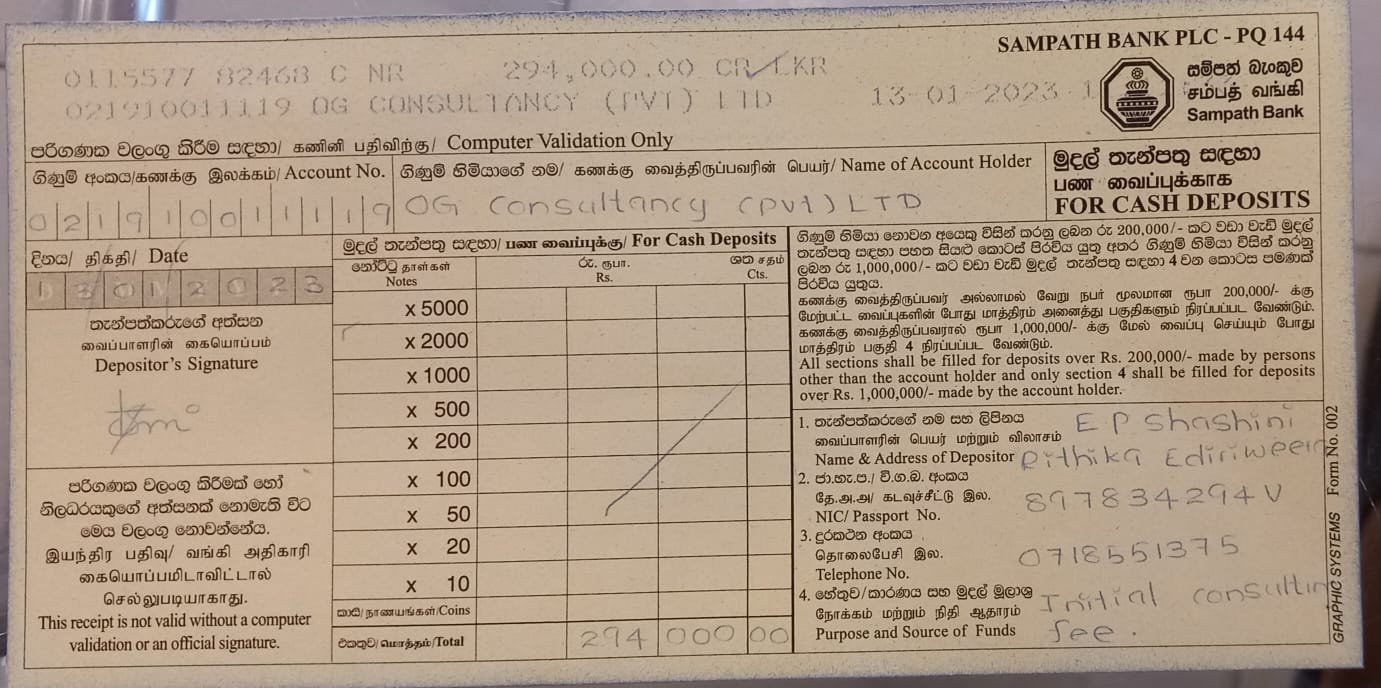 SAMPATH BANK PLC - PQ 144
0115577 82468 C NR 294,000.00 CR/LKR
021910011119 OG CONSULTANCY (PVT) LTD 13-01-2023
සම්පත් බැංකුව
சம்பத் வங்கி
Sampath Bank
පරිගණක වලංගු කිරීම සඳහා/ கணினி பதிவிற்கு/ Computer Validation Only
ගිණුම් අංකය/கணக்கு இலக்கம்/ Account No.
021910011119
ගිණුම් හිමියාගේ නම/ கணக்கு வைத்திருப்பவரின் பெயர்/ Name of Account Holder
OG Consultancy (pvt) LTD
මුදල් තැන්පතු සඳහා
பண வைப்புக்காக
FOR CASH DEPOSITS
දිනය/ திகதி/ Date
13012023
තැන්පත්කරුගේ අත්සන
வைப்பாளரின் கையொப்பம்
Depositor's Signature
පරිගණක වලංගු කිරීමක් හෝ
නිලධරයකුගේ අත්සනක් නොමැති විට
මෙය වලංගු නොවන්නේය.
இயந்திர பதிவு/ வங்கி அதிகாரி
கையொப்பமிடாவிட்டால்
செல்லுபடியாகாது.
This receipt is not valid without a computer
validation or an official signature.
මුදල් තැන්පතු සඳහා/ பண வைப்புக்கு/ For Cash Deposits
නෝට්ටු தாள்கள் රු. ரூபா. ශත சதம்
Notes Rs. Cts.
x 5000
x 2000
x 1000
x 500
x 200
x 100
x 50
x 20
x 10
කාසි/நாணயங்கள்/Coins
එකතුව/மொத்தம்/Total 294 000 00
ගිණුම් හිමියා නොවන අයෙකු විසින් කරනු ලබන රු 200,000/- කට වඩා වැඩි මුදල්
තැන්පතු සඳහා පහත සියළු කොටස් පිරවිය යුතු අතර ගිණුම් හිමියා විසින් කරනු
ලබන රු 1,000,000/- කට වඩා වැඩි මුදල් තැන්පතු සඳහා 4 වන කොටස පමණක්
පිරවිය යුතුය.
கணக்கு வைத்திருப்பவர் அல்லாமல் வேறு நபர் மூலமான ரூபா 200,000/- க்கு
மேற்பட்ட வைப்புகளின் போது மாத்திரம் அனைத்து பகுதிகளும் நிரப்பப்பட வேண்டும்.
கணக்கு வைத்திருப்பவரால் ரூபா 1,000,000/- க்கு மேல் வைப்பு செய்யும் போது
மாத்திரம் பகுதி 4 நிரப்பப்பட வேண்டும்.
All sections shall be filled for deposits over Rs. 200,000/- made by persons
other than the account holder and only section 4 shall be filled for deposits
over Rs. 1,000,000/- made by the account holder.
1. තැන්පත්කරුගේ නම සහ ලිපිනය
வைப்பாளரின் பெயர் மற்றும் விலாசம்
Name & Address of Depositor
E P Shashini
Rithika Ediriweera
2. ජා.හැ.ප./ වි.ග.බ. අංකය
தே.அ.அ/ கடவுச்சீட்டு இல.
NIC/ Passport No.
897834294V
3. දුරකථන අංකය
தொலைபேசி இல.
Telephone No.
0718551375
4. හේතුව/කාරණය සහ මුදල් මූලාශ්‍ර
நோக்கம் மற்றும் நிதி ஆதாரம்
Purpose and Source of Funds
Initial consulting
fee.
GRAPHIC SYSTEMS Form No. 002